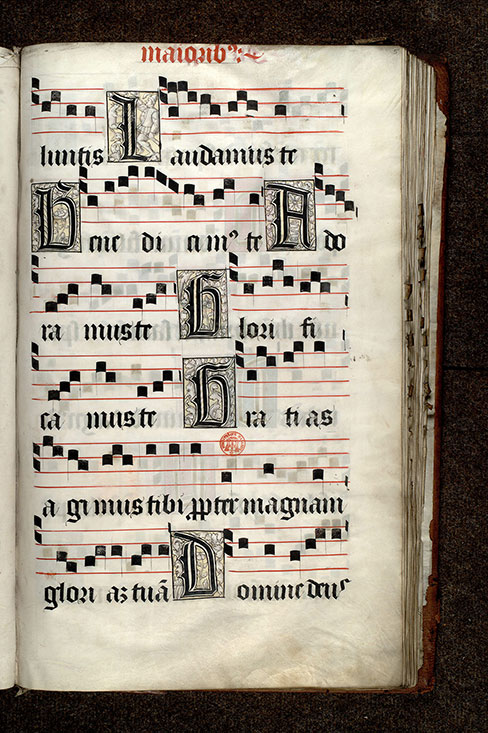 maiorib⁹:
luntis Laudamus te
Bene di ci m⁹ te Ado
ra mus te Glori fi
ca mus te Gra ti as
a gi mus tibi ꝓpter magnam
glori aꝫ tuā Domine deu⁹